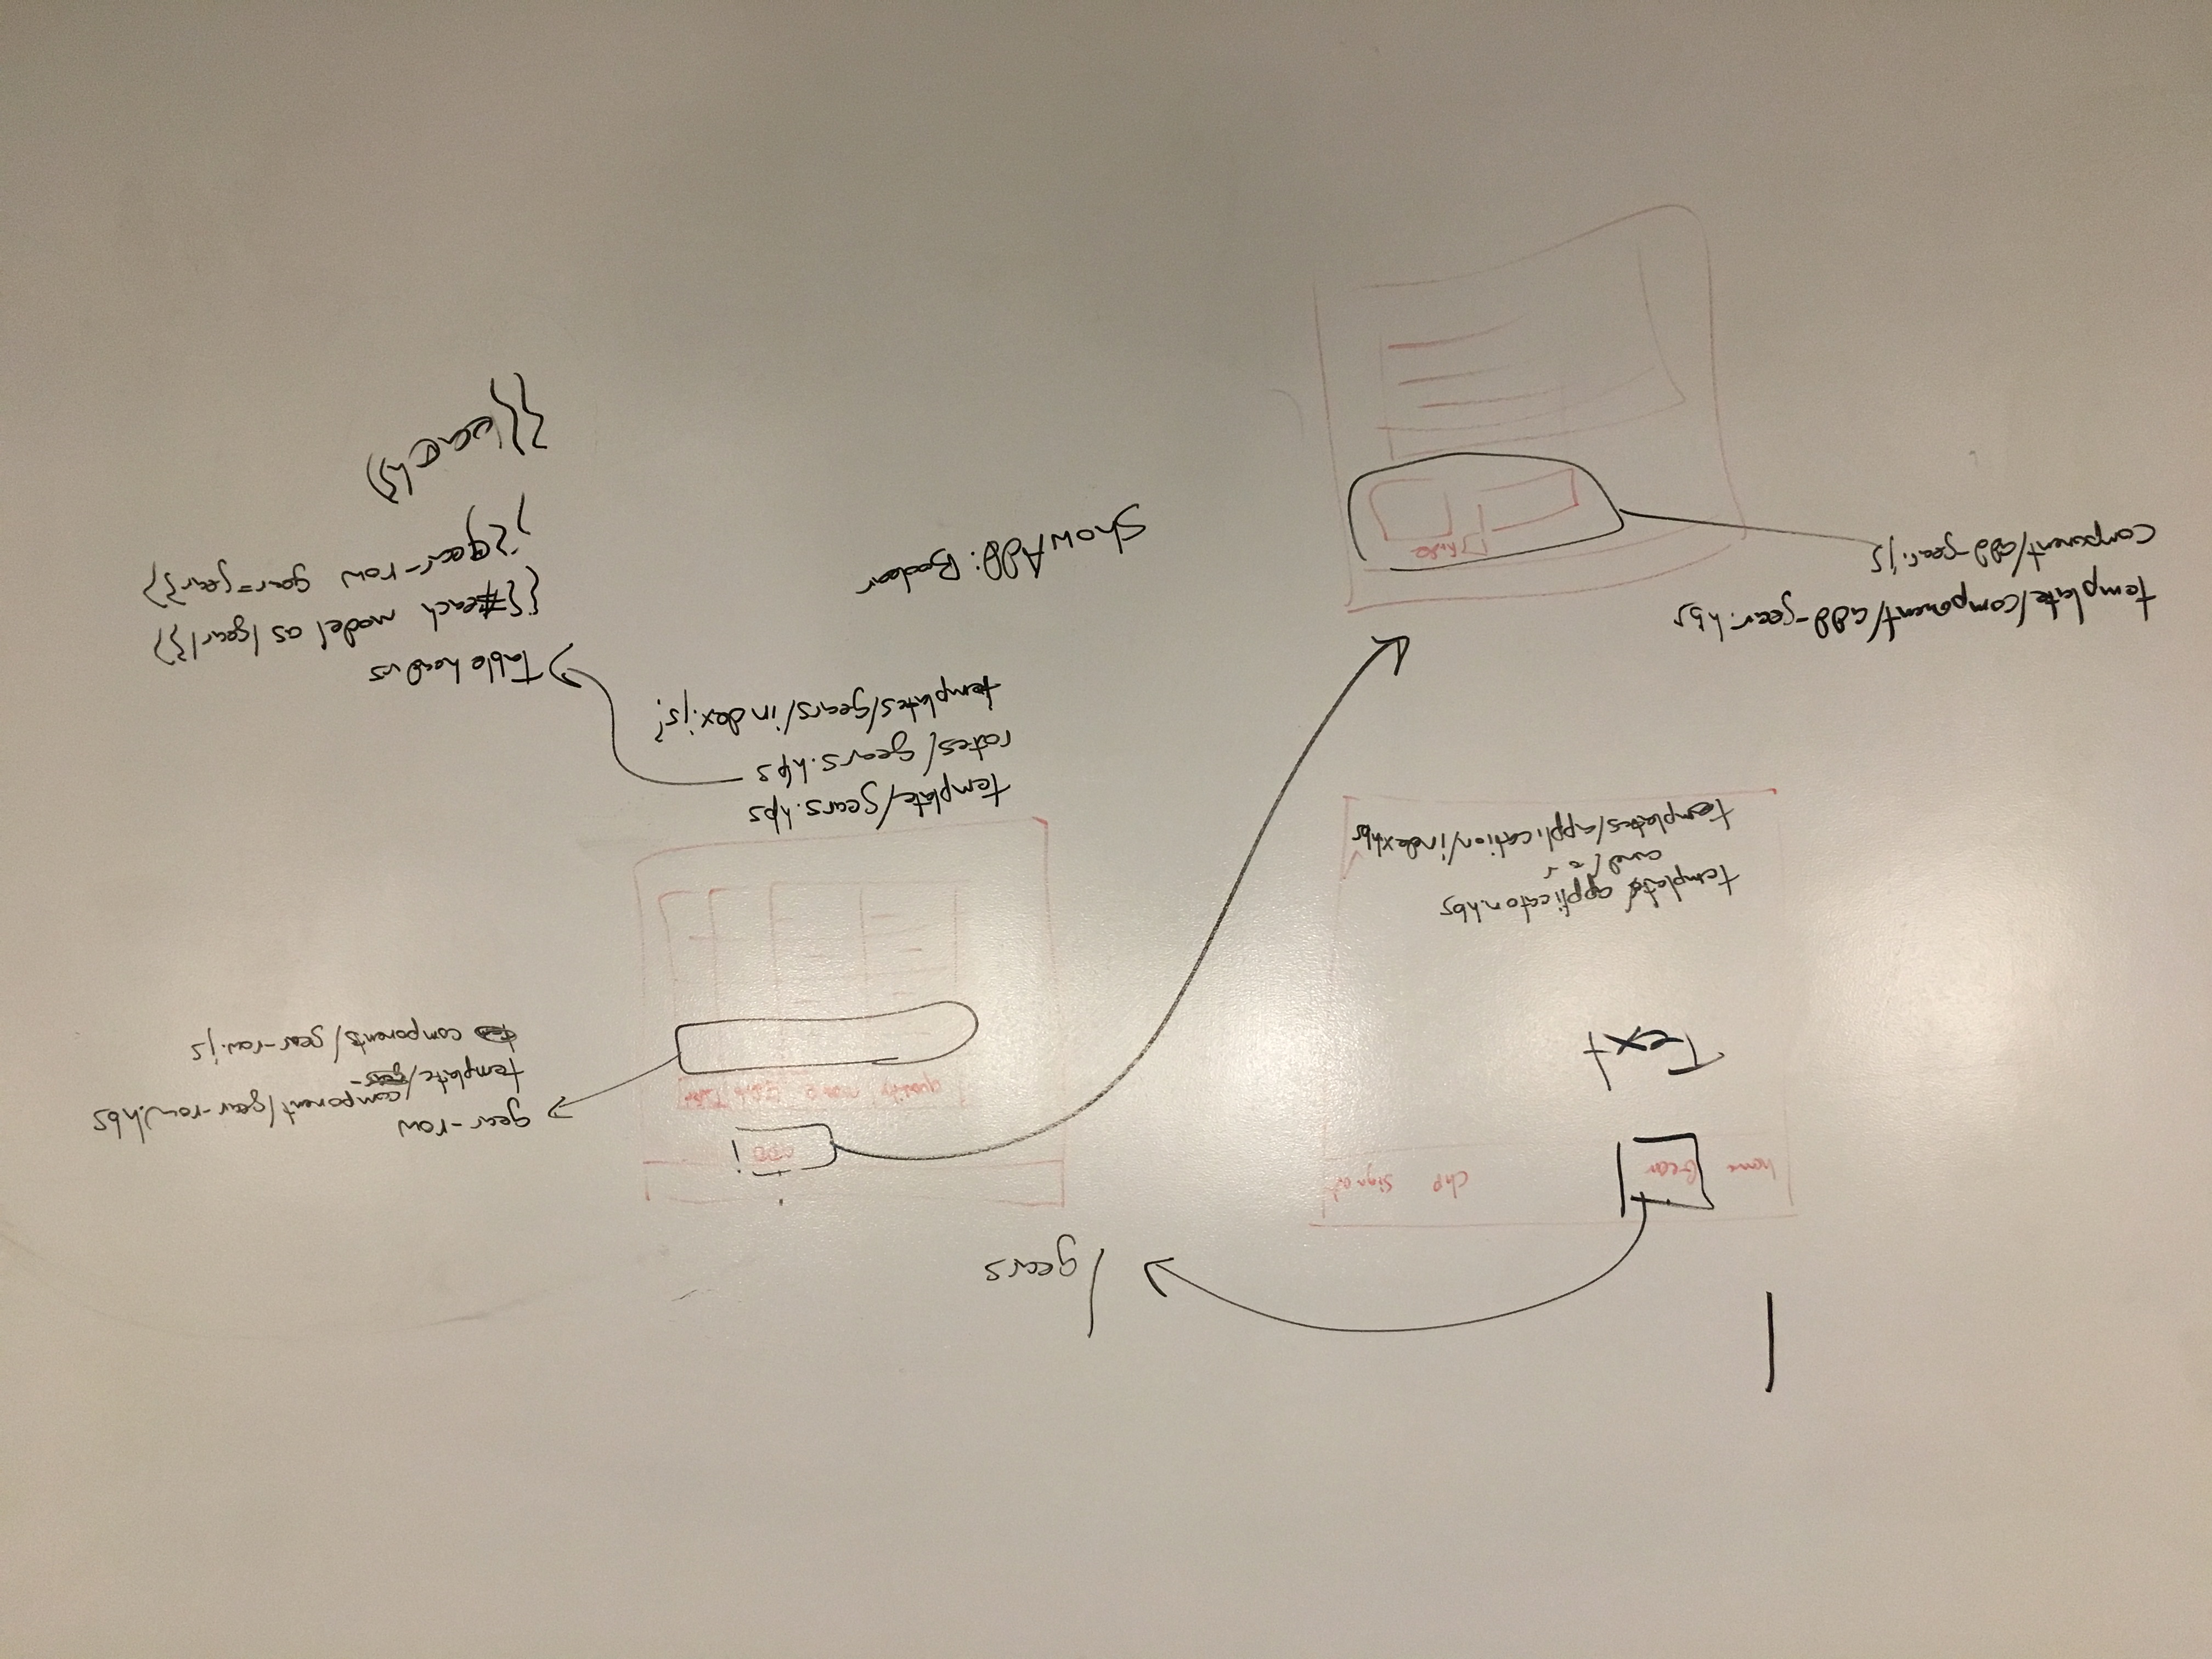 /
/gears
home Gear chp sign out
Text
template/ applicaton.hbs
and/or
templates/application/index.hbs
ADD
quantity name
gear-row
template/component/gear-row.hbs
components/gear-row.js
template/gears.hbs
rotes/gears.hbs
templates/gears/index.js?
Table headers
{{#each model as |gear|}}
{{gear-row gear=gear}}
{{/each}}
showAdd: Boolean
template/component/add-gear.hbs
component/add-gear.js